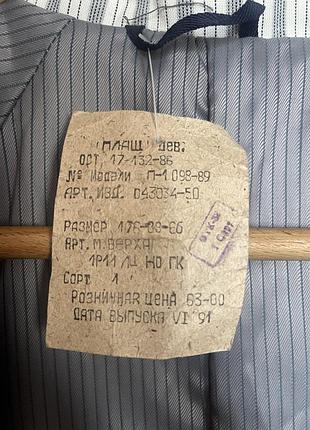 ПЛАЩ дев.
ОСТ. 17-132-86
№ Модели П-1098-89
АРТ. ИЗД. 043034-50
РАЗМЕР 176-88-66
АРТ. М. ВЕРХА
1Р11
Сорт 1
РОЗНИЧНАЯ ЦЕНА 63-00
ДАТА ВЫПУСКА VI 91